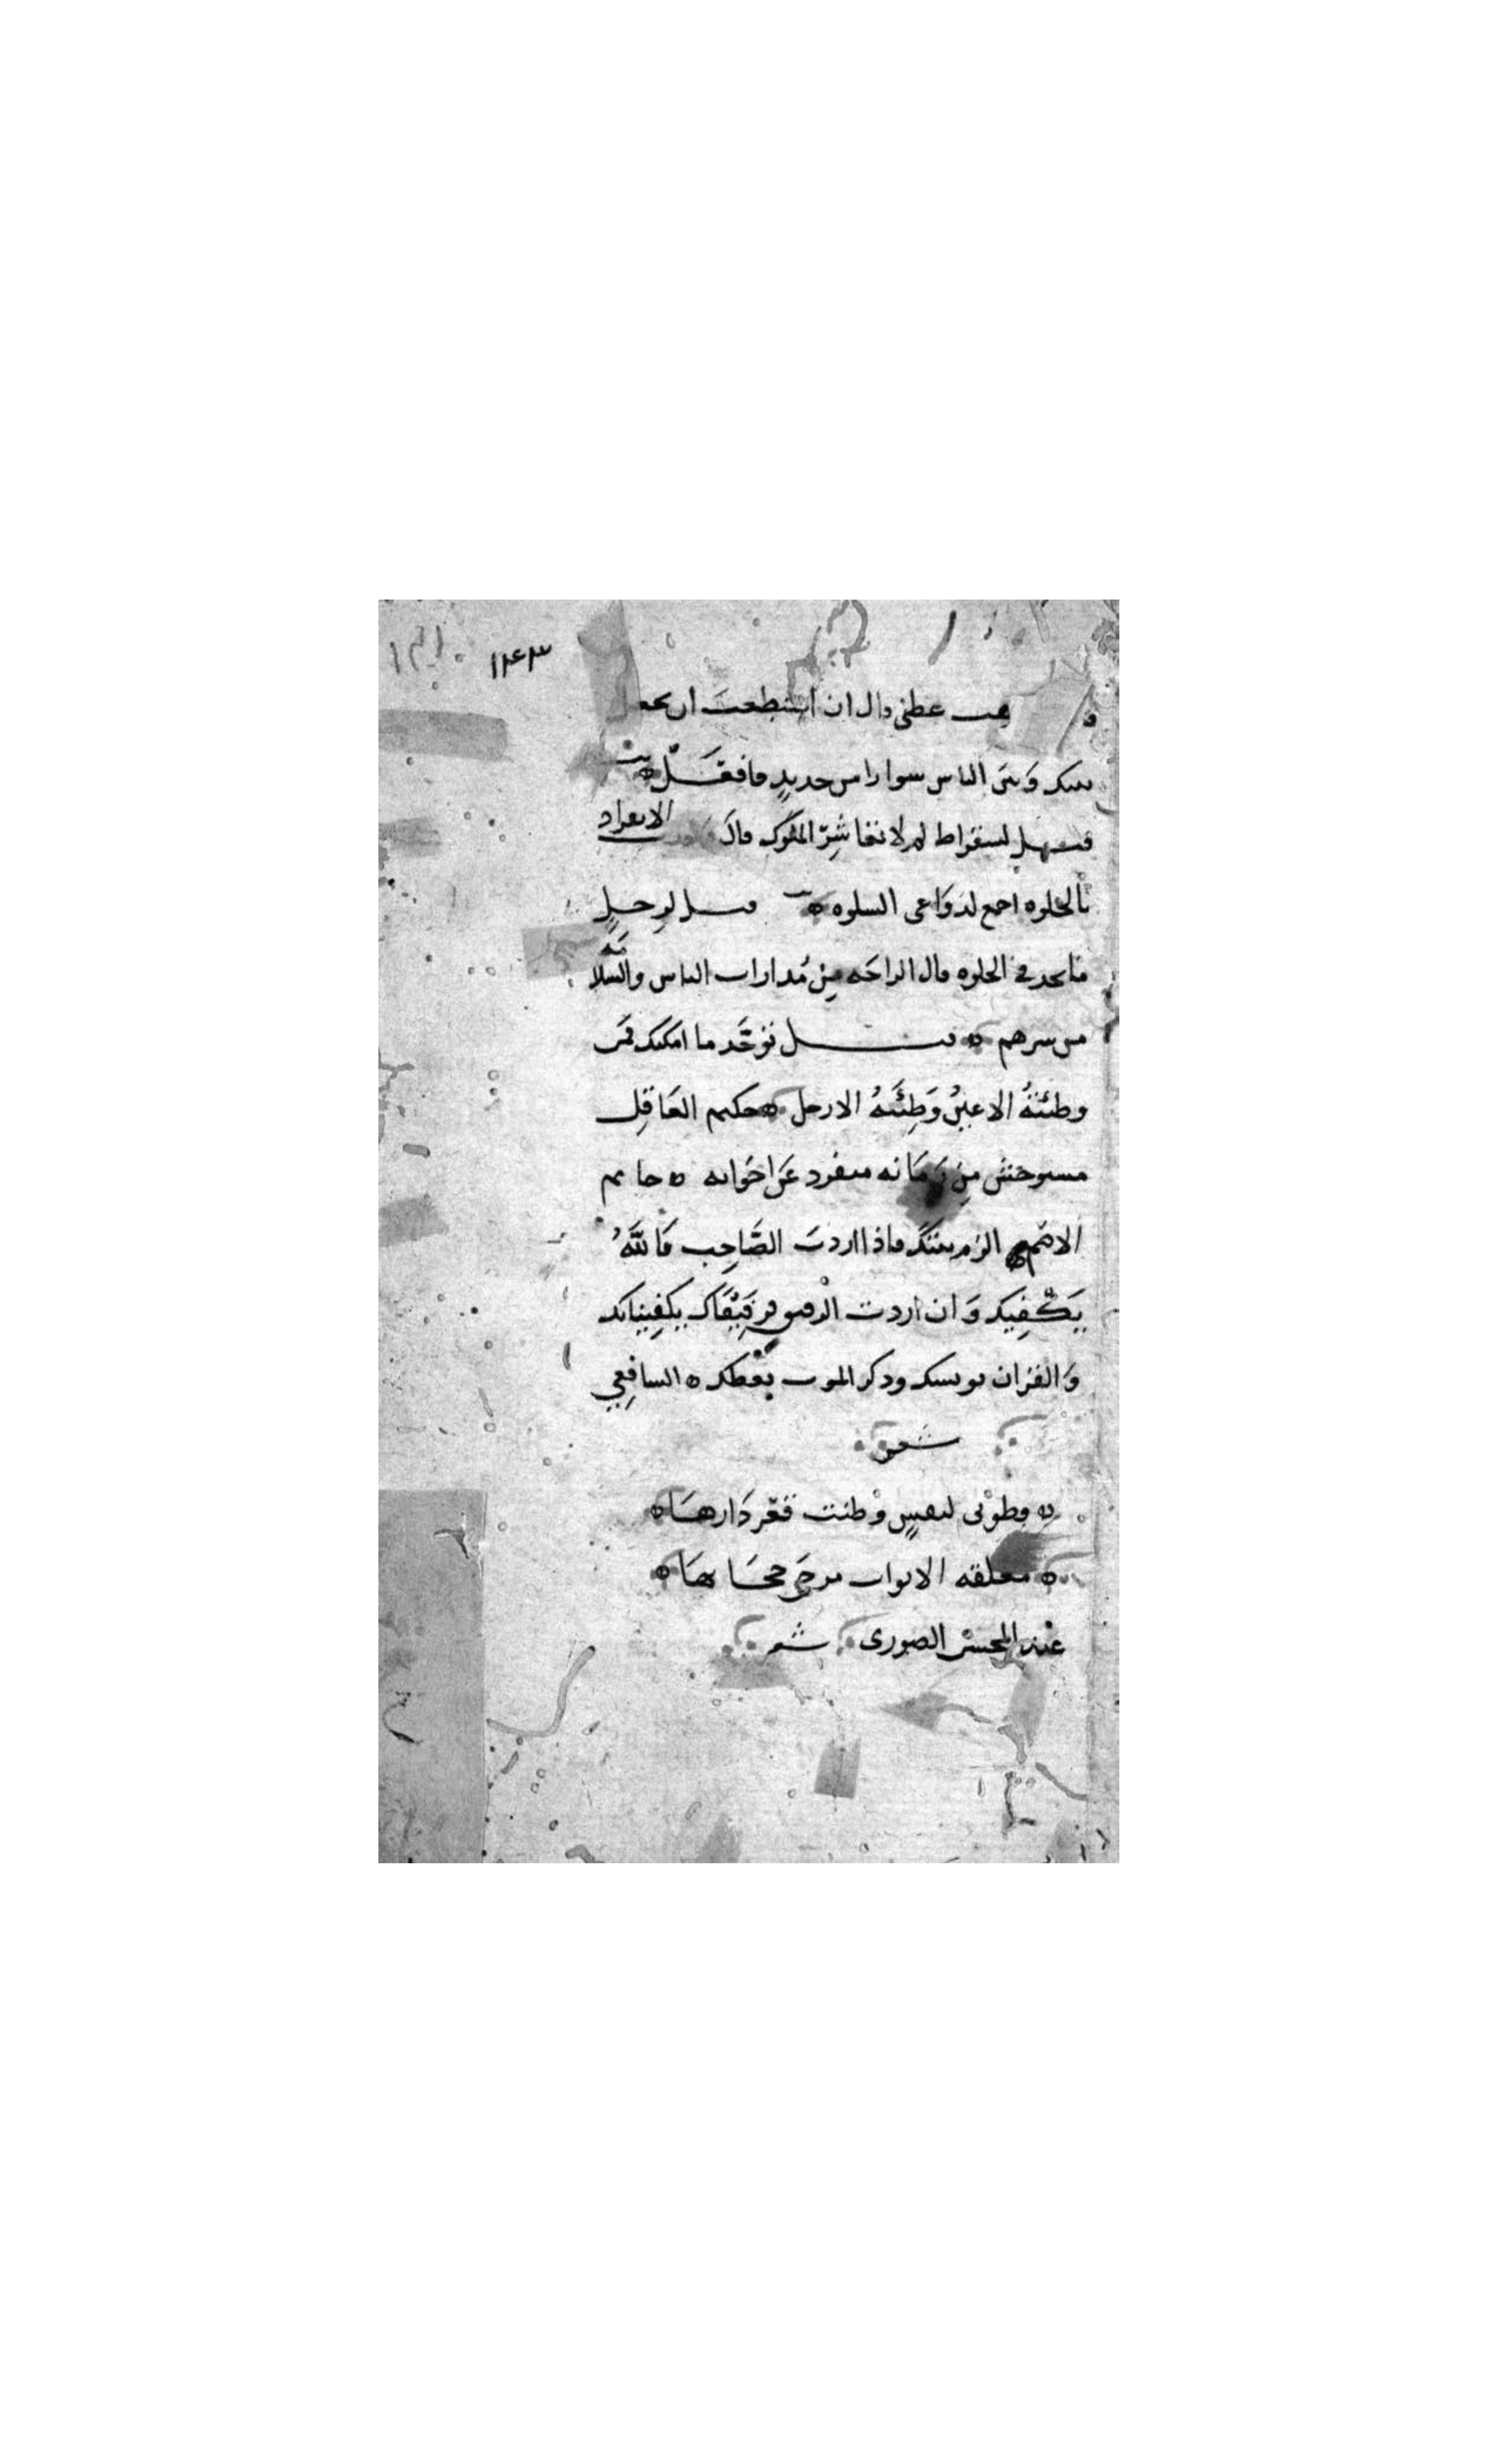 ١٤٣
عظني قال ان استطعت ان تجعل
بينك وبين الناس سورا من حديد فافعل
قيل لسقراط لم لا تغاشر الملوك قال الانفراد
بالخلوه اجمع لدواعي السلوه قيل لرجل
ما تجد في الخلوه قال الراحه من مدارات الناس والسلامه
من شرهم قيل توحد ما امكنك فمن
وطئته الاعين وطئته الارجل حكيم العاقل
مستوحش من زمانه منفرد عن اخوانه حاتم
الاصم الزم بيتك فاذا اردت الصاحب فالله
يكفيك وان اردت الرفيق فرقيباك يكفيناك
والقران يونسك وذكر الموت يعظك الشافعي
شعر
وطوبى لنفس وطنت قعر دارها
مغلقه الابواب مرخى حجابها
عبد المحسن الصوري شعر